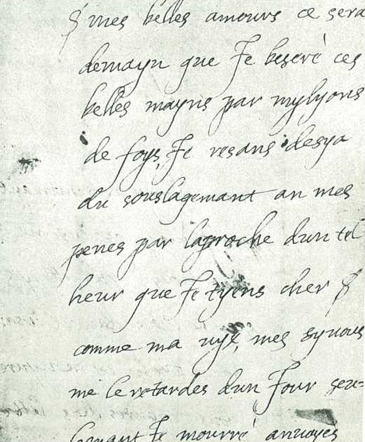 $ mes belles amours ce sera
demayn que Je beseré ces
belles mayns par mylyons
de foys, Je resans desya
du souslagemant an mes
penes par laproche dun tel
heur que Je tyens cher $
comme ma vye, mes sy vous
me le retardes dun Jour seu=
lemant Je mourré